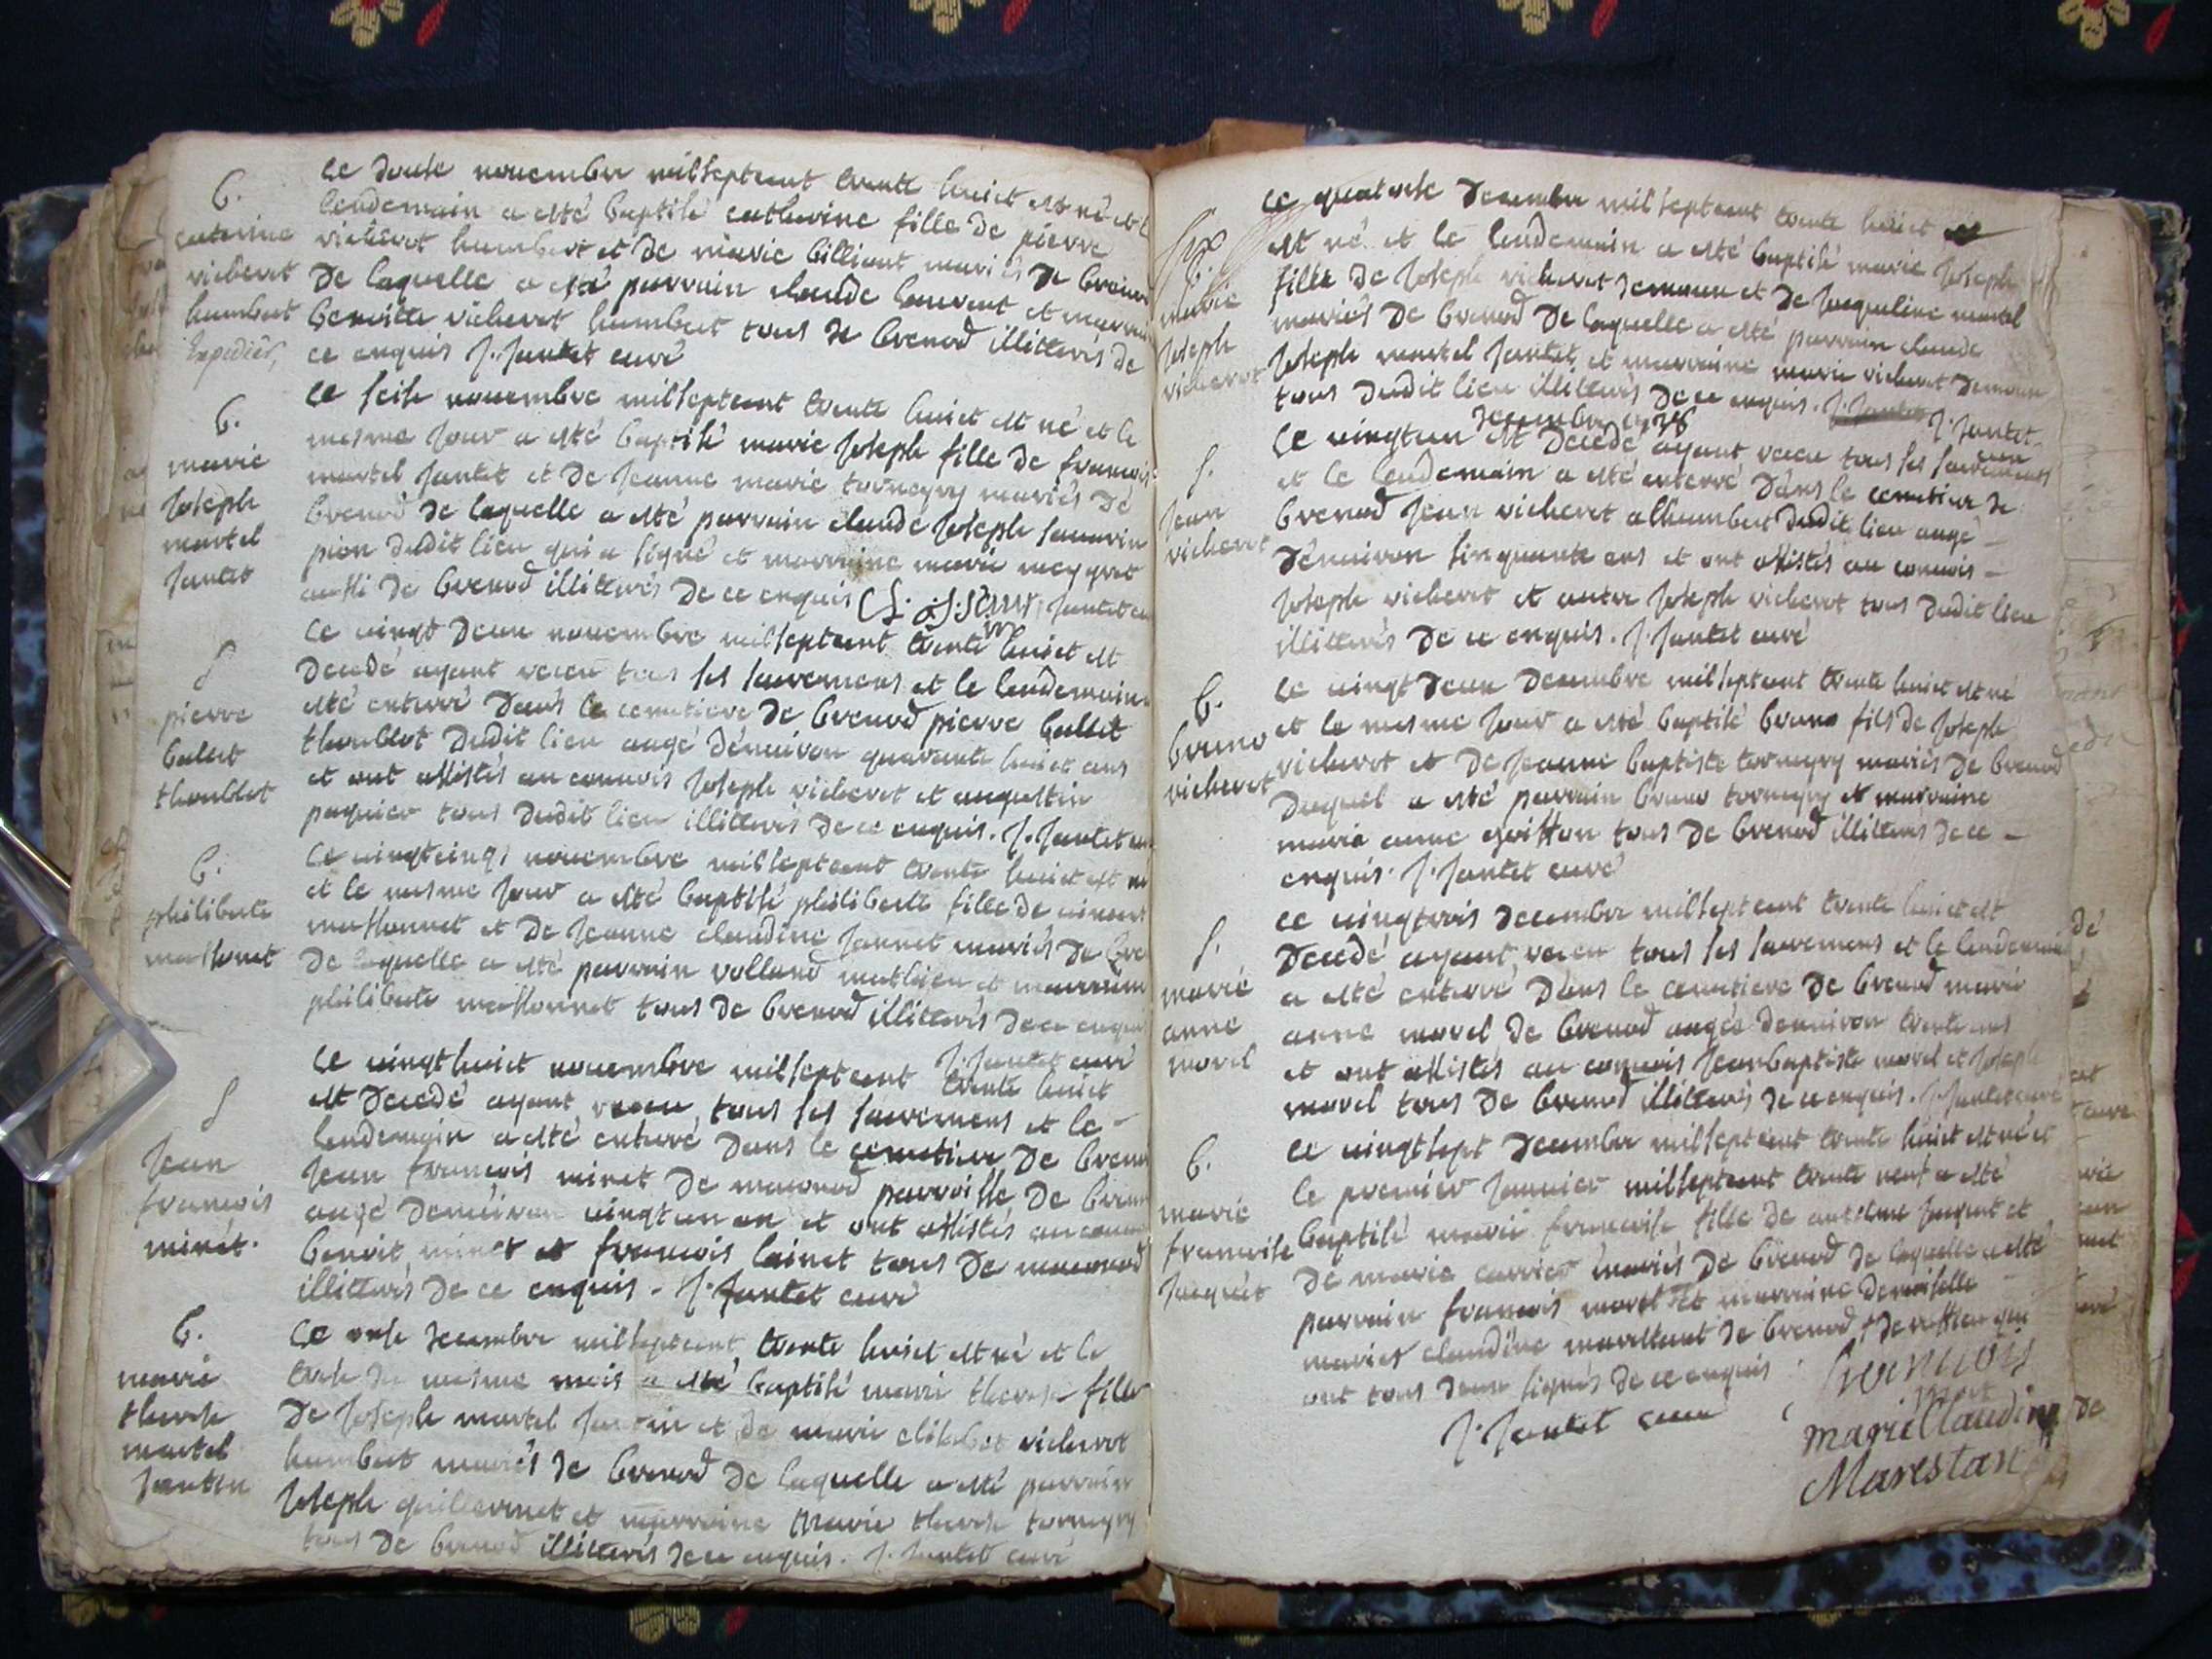 b.
caterine
vicheret
humbert
Expedier,
Le douse novembre milseptcent trente huict est né et le
lendemain a esté baptisé catherine fille de pierre
vicheret humbert et de marie billiont mariés de brenod
de laquelle a esté parrain claude laurent et marraine
benoitte vicheret humbert tous de brenod illitterés de
ce enquis J. Jantet curé
b.
marie
Joseph
martel
Jantet
Le seise novembre milseptcent trente huict est né et le
mesme Jour a esté baptisé marie Joseph fille de francois
martel Jantet et de Jeanne marie tornegry mariés de
brenod de laquelle a esté parrain claude Joseph savarin
pion dudit lieu qui a signé et marraine marie meygret
aussi de brenod illitterés de ce enquis Jantet cu
S
pierre
ballet
thoublot
Le vingt deux novembre milseptcent trente huict est
decedé ayant receu tous ses sacremens et le lendemain a
esté enterré dans le cemetiere de brenod pierre ballet
thoublot dudit lieu aagé d'environ quarante huict ans
et ont assistés au convois Joseph vicheret et augustin
paquier tous dudit lieu illitterés de ce enquis. J. Jantet cu
b.
philiberte
massonnet
Le vingtcinq novembre milseptcent trente huict est né
et le mesme Jour a esté baptisé philiberte fille de vincent
massonnet et de Jeanne claudine Jannet mariés de bre
de laquelle a esté parrain volland mathieu et marraine
philiberte massonnet tous de brenod illitterés de ce enquis
J. Jantet curé
S
Jean
francois
minet.
Le vingthuict novembre milseptcent trente huict
est decedé ayant receu tous ses sacremens et le -
lendemain a esté enterré dans le cemetiere de brenod
Jean francois minet de macconod parroisse de brenod
aagé d'environ vingt un an et ont assistés au convois
benoit minet et francois lainet tous de macconod
illitterés de ce enquis - J. Jantet curé
b.
marie
therese
martel
Jantin
Le onse decembre milseptcent trente huict est né et le
trese du mesme mois a esté baptisé marie therese fille
de Joseph martel Jantin et de marie elisabet vicheret
humbert mariés de brenod de laquelle a esté parrain
Joseph guillermet et marraine Marie therese tornegry
tous de brenod illitterés de ce enquis. J. Jantet curé
b.
marie
Joseph
vicheret
Le quatorse decembre milseptcent trente huict
est né et le lendemain a esté baptisé marie Joseph
fille de Joseph vicheret demoux et de Jacqueline martel
mariés de brenod de laquelle a esté parrain claude
Joseph martel Jantet et marraine marie vicheret demoux
tous dudit lieu illitterés de ce enquis. J. Jantet J. Jantet
curé
S.
Jean
vicheret
decembre 1738
Le vingtun est decedé ayant receu tous ses sacremens
et le lendemain a esté enterré dans le cemetiere de
brenod Jean vicheret alhumbert dudit lieu aagé -
d'environ sinquante ans et ont assistés au convois -
Joseph vicheret et autre Joseph vicheret tous dudit lieu
illitterés de ce enquis. J. Jantet curé
b.
bruno
vicheret
Le vingt deux decembre milseptcent trente huict est né
et le mesme Jour a esté baptisé bruno fils de Joseph
vicheret et de Jeanne baptiste tornegry mariés de brenod
duquel a esté parrain bruno tornegry et marraine
marie anne goisson tous de brenod illitterés de ce -
enquis. J. Jantet curé
S.
marie
anne
morel
Le vingtrois decembre milseptcent trente huict est
decedé ayant receu tous ses sacremens et le lendemain
a esté enterré dans le cemetiere de brenod marie
anne morel de brenod aagée d'environ trente ans
et ont assistés au convois Jeanbaptiste morel et Joseph
morel tous de brenod illitterés de ce enquis. J. Jantet curé
b.
marie
francoise
Jaquet
Le vingtsept decembre milseptcent trente huict est né et
le premier Janvier milseptcent trente neuf a esté
baptisé marie francoise fille de antelme Jaquet et
de marie carrier mariés de brenod de laquelle a esté
parrain francois morel et marraine demoiselle
marie claudine marestant de brenod qui
ont tous deux signés de ce enquis
J. Jantet curé
francois
morel
marie Claudine de
Marestan